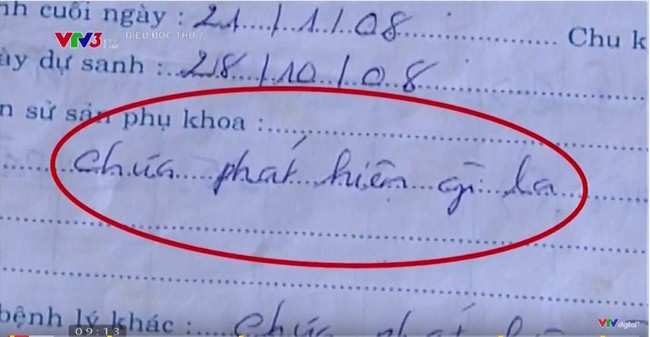 VTV3 ĐIỀU ƯỚC THỨ 7
nh cuối ngày : 21/1/08 Chu k
ày dự sanh : 28/10/08
n sử sản phụ khoa :
chưa phát hiện gì lạ
bệnh lý khác : chưa phát h
09:13
VTV digital